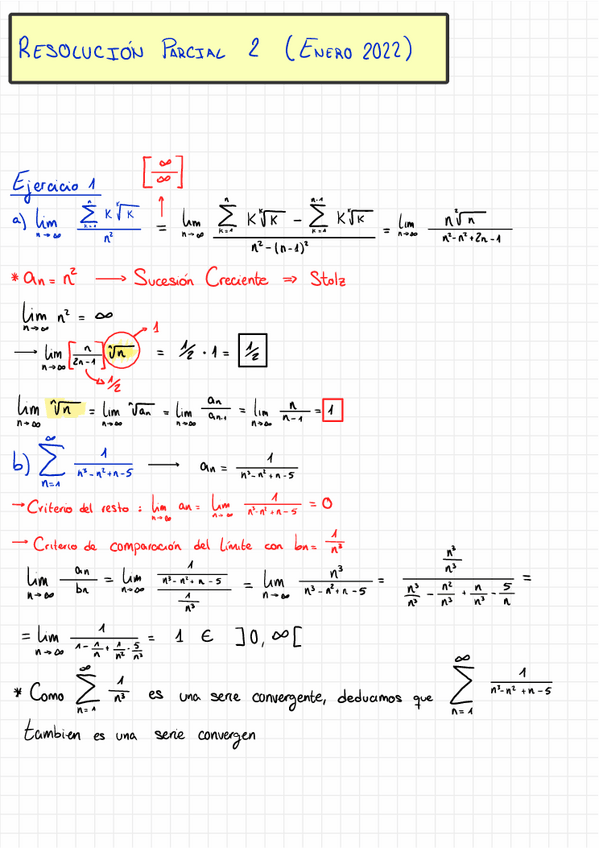 RESOLUCIÓN PARCIAL 2 (ENERO 2022)
Ejercicio 1
[∞/∞]
a) lim n→∞ (∑ k=1 n K ᵏ√K) / n² = lim n→∞ (∑ k=1 n K ᵏ√K − ∑ k=1 n-1 K ᵏ√K) / (n² − (n−1)²) = lim n→∞ (n ⁿ√n) / (n²−n²+2n−1)
* an = n² → Sucesión Creciente ⇒ Stolz
lim n→∞ n² = ∞
→ lim n→∞ [n / (2n−1)] ⁿ√n = 1/2 · 1 = 1/2
1
1/2
lim n→∞ ⁿ√n = lim n→∞ ⁿ√an = lim n→∞ an / an-1 = lim n→∞ n / (n−1) = 1
b) ∑ n=1 ∞ 1 / (n³−n²+n−5) → an = 1 / (n³−n²+n−5)
→ Criterio del resto : lim n→∞ an = lim n→∞ 1 / (n³−n²+n−5) = 0
→ Criterio de comparación del límite con bn = 1/n³
lim n→∞ an/bn = lim n→∞ (1 / (n³−n²+n−5)) / (1/n³) = lim n→∞ n³ / (n³−n²+n−5) = (n³/n³) / (n³/n³ − n²/n³ + n/n³ − 5/n) =
= lim n→∞ 1 / (1 − 1/n + 1/n² · 5/n³) = 1 ∈ ]0, ∞[
* Como ∑ n=1 ∞ 1/n³ es una serie convergente, deducimos que ∑ n=1 ∞ 1 / (n³−n²+n−5)
tambien es una serie convergen